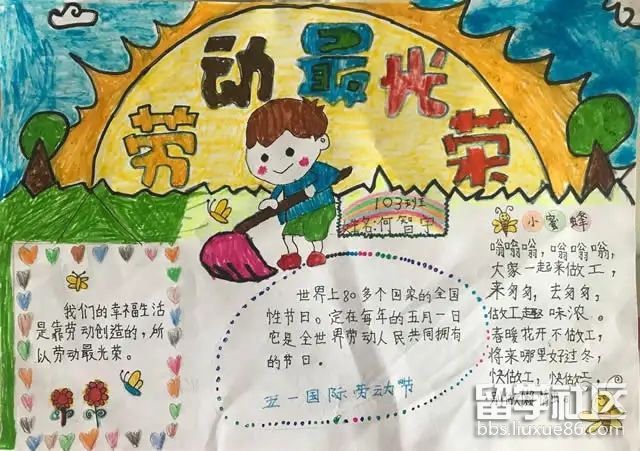 劳动最光荣
103班
姓名:何智宇
我们的幸福生活
是靠劳动创造的,所
以劳动最光荣。
世界上80多个国家的全国
性节日。定在每年的五月一日
它是全世界劳动人民共同拥有
的节日。
五一国际劳动节
小蜜蜂
嗡嗡嗡,嗡嗡嗡,
大家一起来做工,
来匆匆,去匆匆,
做工趣味浓。
春暖花开不做工,
将来哪里好过冬,
快做工,快做工,
别做懒
留学社区
bbs.liuxue86.com